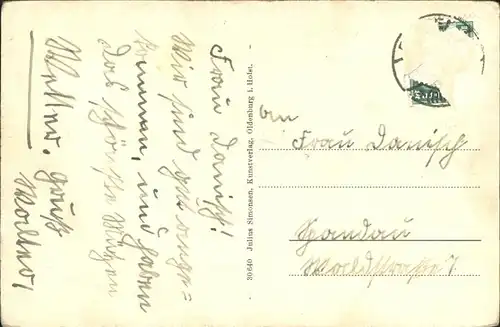 Frau Danisch!
Wir sind gut ange=
kommen, und haben
das schönste Wetter.
Gruß
Walter
30640 Julius Simonsen, Kunstverlag, Oldenburg i. Holst.
An
Frau Danisch
Spandau